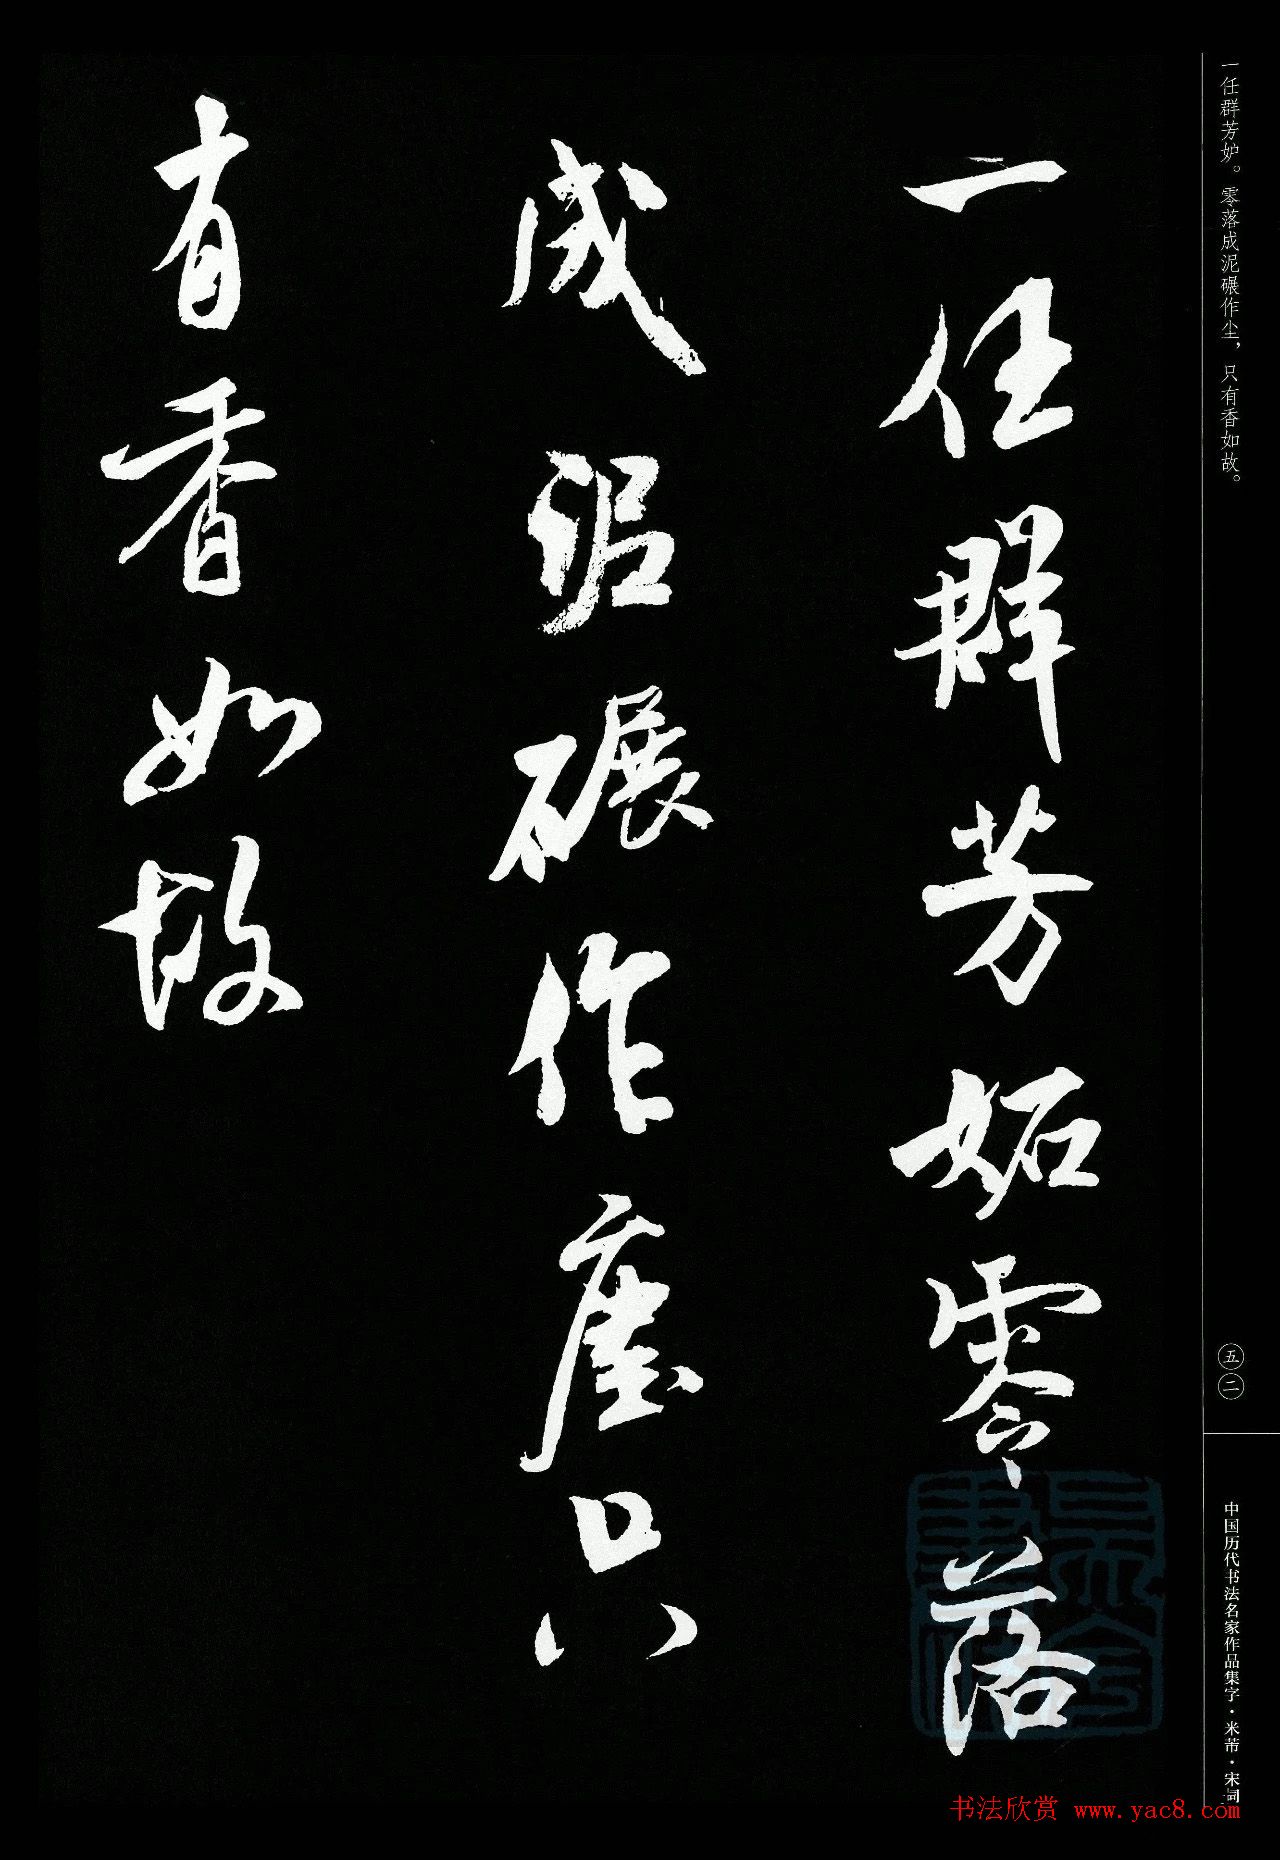 一任群芳妒。零落成泥碾作尘，只有香如故。
一任群芳妬零落
成泥碾作塵只
有香如故
五二
中国历代书法名家作品集字·米芾·宋词
书法欣赏 www.yac8.com